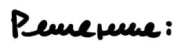 Решение: